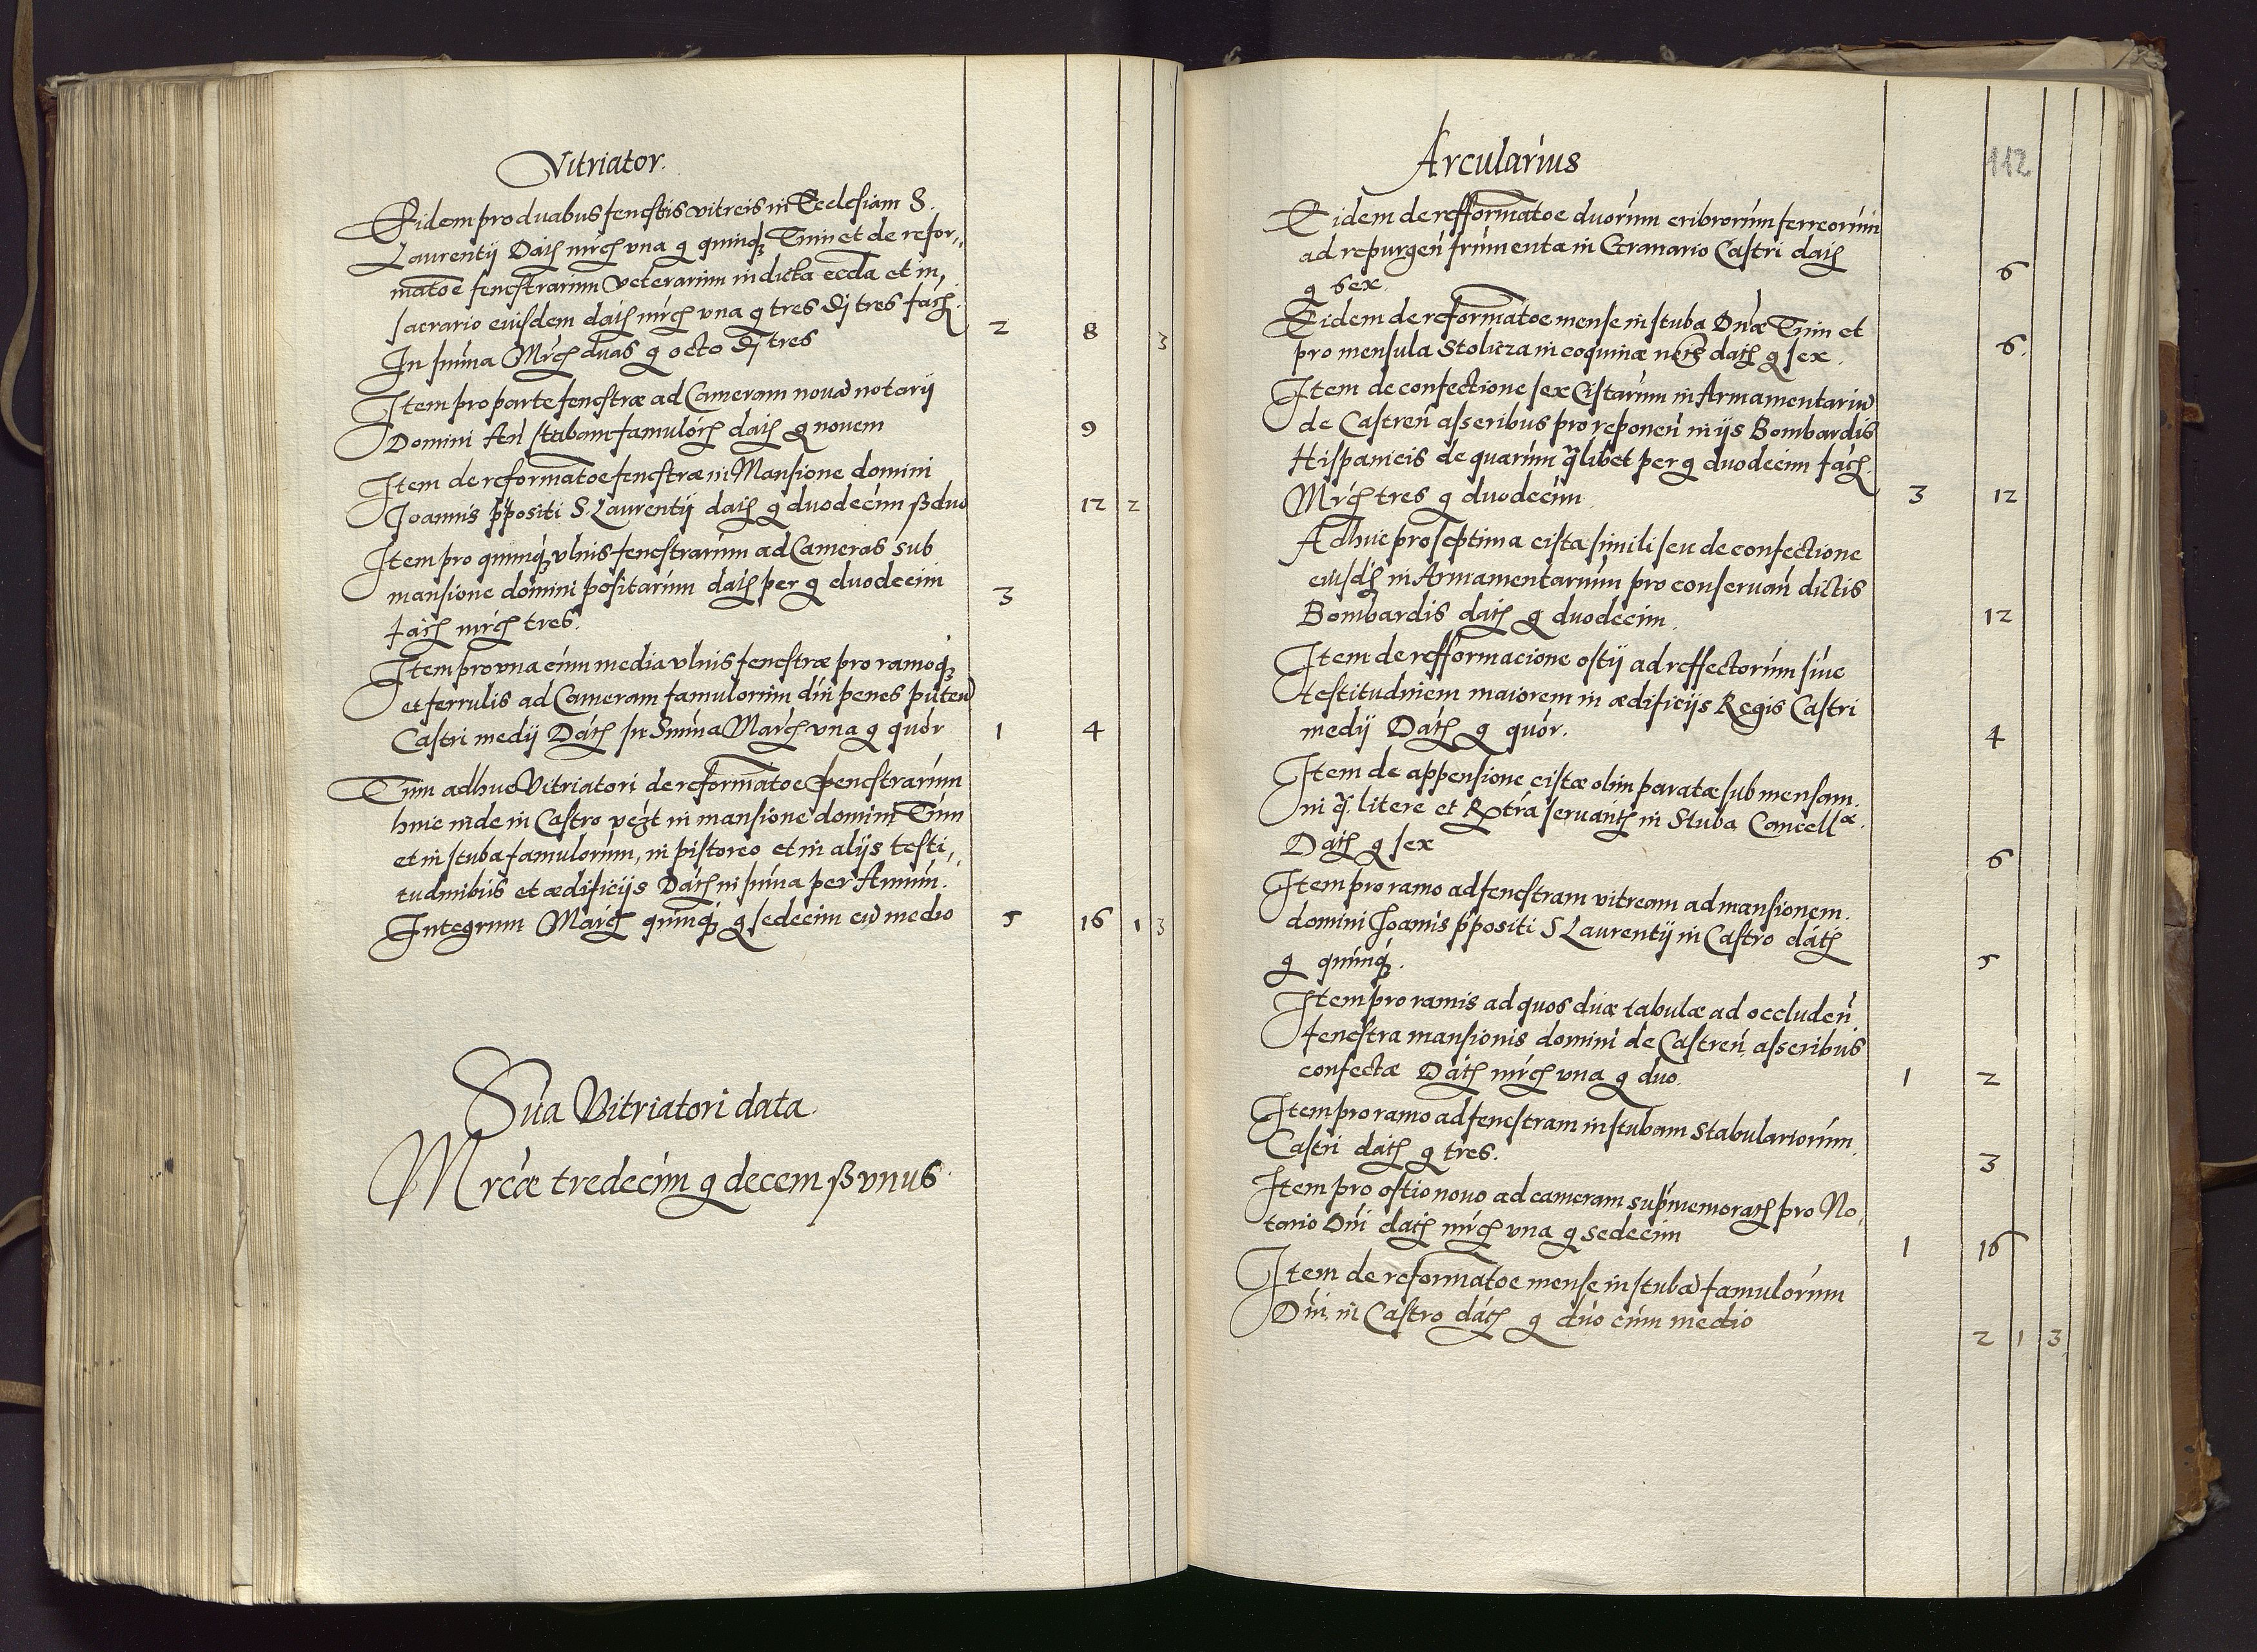 Vitriator.
Eidem pro duabus fenestris vitreis in Ecclesiam S. 
Laurentÿ Datt mrc vna g quinqz Tum et de refor,,
matõe fenestrarum veterarum in dicta eccla et in,
sacrario eiusdem datt mrc vna g tres đ tres fac. 2 8 3
In suma Mrc duas g octo đ tres
Item pro parte fenestræ ad Cameram nouã notarÿ
Domini An stubam famulor datt g nouem 9
Item de reformatoe fenestræ in Mansione domini
Joannis ppositi S. Laurentÿ datt g duodecim ß duo 12 2
Item pro quinqz vlnis fenestrarum ad Cameras sub
mansione domini positarum datt per g duodecim 3
facit mrc tres.
Item pro vna cum media vlnis fenestræ pro ramoqz
et ferrulis ad Cameram famulorum dni penes puteũ
Castri medÿ Datt in Suma Marc vna g quor 1 4
Tum adhuc Vitriatori de reformatoe fenestrarum
hinc inde in Castro vezt in mansione domini Tum
et in stuba famulorum, in pistoreo et in alÿs testi,,
tudinibus et ædificÿs Datt in suma per Annum.
Integrum Marc quinqz g sedecim cũ medio 5 16 1 3
Sua Vitriatori data
Mrcæ tredecim g decem ß vnus.
Arcularius
112
Eidem de refformatoe duorum cribrorum ferreorum
ad repurgen frumenta in Granario Castri datt
g sex. 6
Eidem de reformatoe mense in stuba Dnæ Tum et
pro mensula Stolicza in coquinæ datt g sex. 6.
Item de confectione sex Cistarum in Armamentariũ
de Castren asseribus pro reponen in ijs Bombardis
Hispanicis de quarum qlibet per g duodecim fac.
Mrc tres g duodecim. 3 12
Adhuc pro septima cista simili seu de confectione
eiusd in Armamentarium pro conseruan dictis
Bombardis datt g duodecim. 12
Item de refformacione ostÿ ad reffectorum siue
testitudinem maiorem in ædificÿs Regis Castri
medÿ Datt g quor. 4
Item de appensione cistæ olim paratæ sub mensam.
in q litere et Rxtra seruantz in Stuba Cancellæ.
Datt g sex 6
Item pro ramo ad fenestram vitream ad mansionem.
domini Joanis ppositi S Laurentÿ in Castro datt
g quinqz. 5
Item pro ramis ad quos duæ tabulæ ad occluden
fenestra mansionis domini de Castren asseribus
confectæ Datt mrc vna g duo. 1 2
Item pro ramo ad fenestram in stubam stabulariorum.
Castri datt g tres. 3
Item pro ostio nouo ad cameram supmemorat pro No,
tario Dni datt mrc vna g sedecim 1 16
Item de reformatoe mense in stubã famulorum
Dni. in Castro datt g duo cum medio 2 1 3